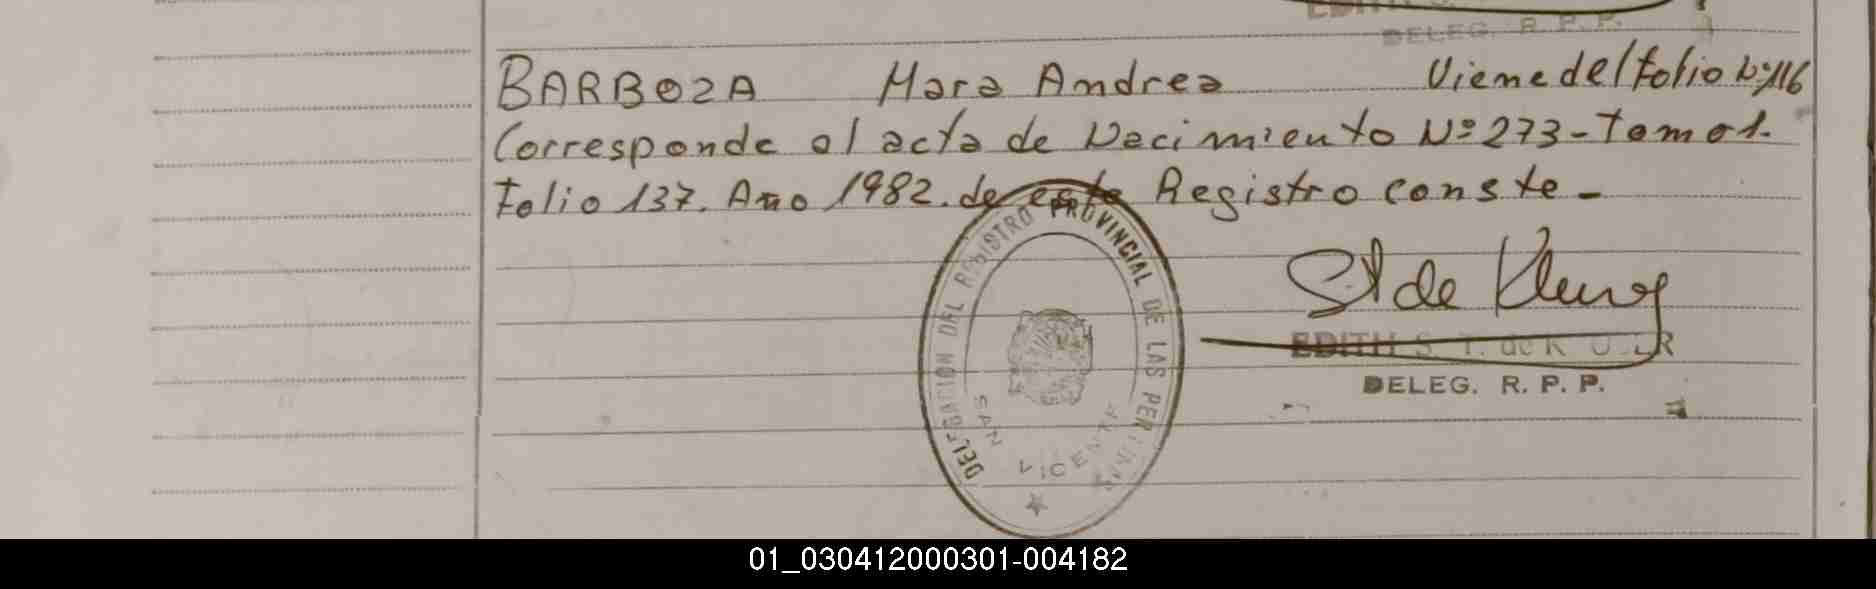 DELEG. R. P. P.
BARBOZA Mara Andrea Viene del folio Nº 116
Corresponde al acta de Nacimiento Nº 273 - Tomo 1.
Folio 137. Año 1982. de este Registro conste -
DELEGACION DEL REGISTRO PROVINCIAL DE LAS PERSONAS
SAN VICENTE
EDITH S. T. de
DELEG. R. P. P.
01_030412000301-004182